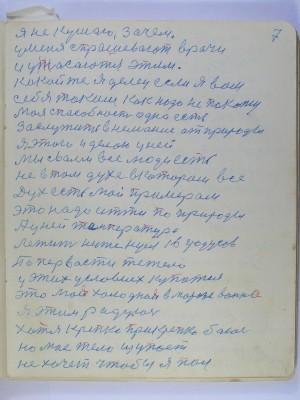 7
Я не кушаю, зачем.
у меня спрашевают врачи
и ужасаются этим.
Какой же я делец если я вам
себя таким как надо не покажу
Моя способность одно есть
Заслужить внемание от природы
Я этого и делаю у ней
Мы стали все люди есть
не в том духе в котором все
Дух есть мой примерам
это надо итти по природы
А у ней температура
Летит ниже нуля 16 градусов
По первасти тежело
у этих условиях купатся
это мой холодная в марозе ванна
Я этим радуюся
Хотя крепко прикрепко балею
но мое тело шумает
не хочет чтобы я пал